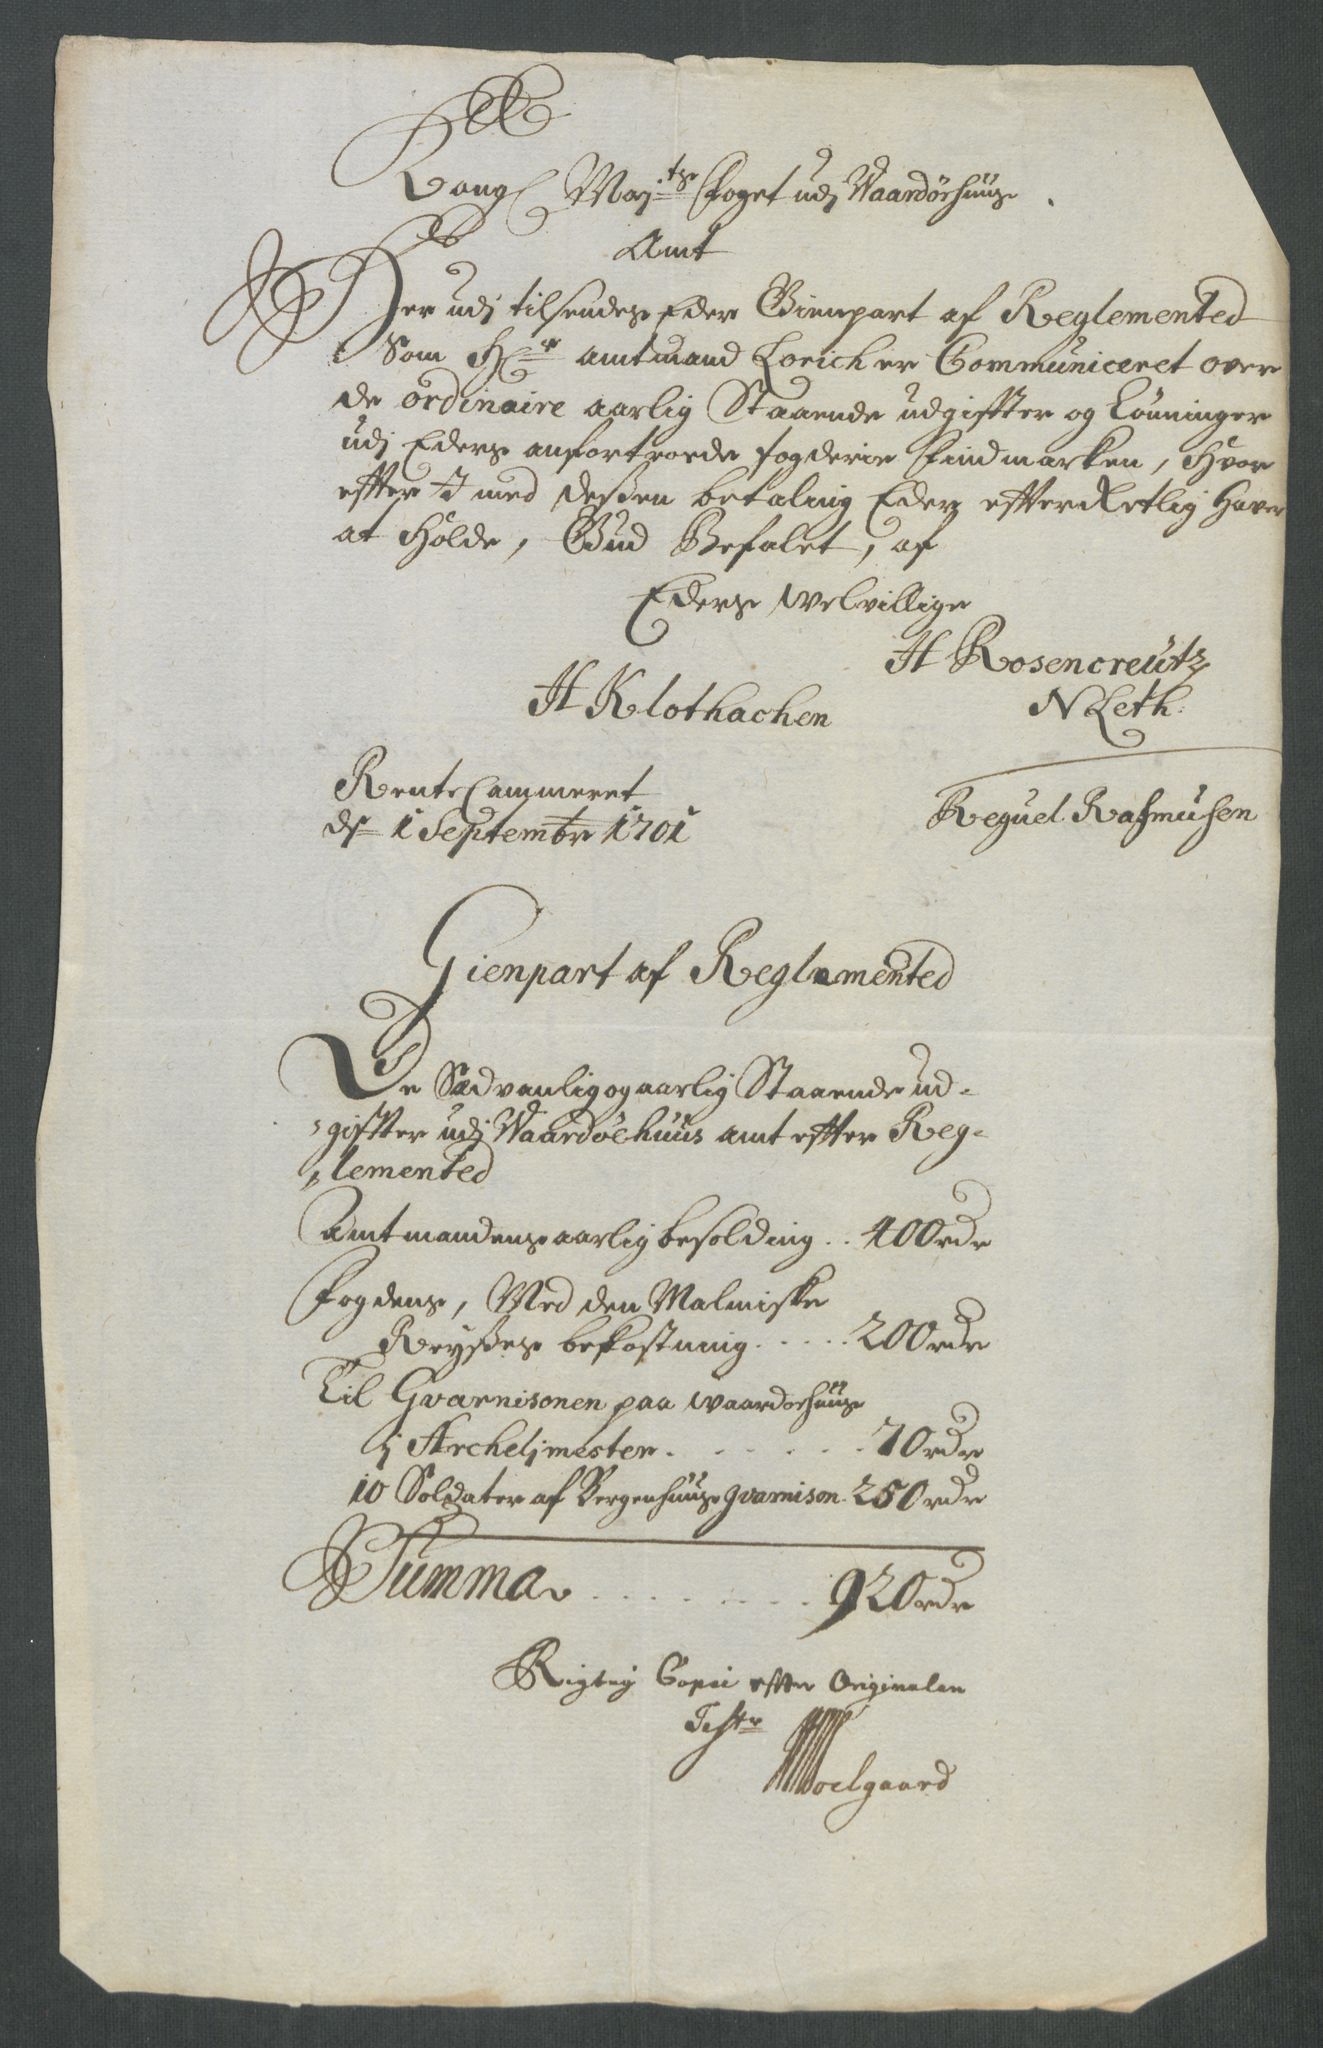 Kongl Maj:ts foget udj Waardøehuus
Amt
Her udj tilsendes Eder Gienpart af Reglementted
Som Hr amtmand Lorich er Communiceret over
de ordinaire aarlig Staaende udgiffter og Lønninger
udj Eders anfortroede fogderie findmarken, Hvor
effter I med deßen betaling Eder effterRetlig haver
at holde, Gud Befalet, af
Eders welvillige
H Rosencreütz
H Klothachen
N Leth.
Rente Cammeret
ds 1 Septembr 1701
Reguel Rasmusen
Gienpart af Reglementted
De Sædvanlig og aarlig Staaende ud-
giffter udj Waardøehuus amt effter Reg-
lementted
Amtmandens aarlig besolding .. 400 rdr
Fogdens, Med den Malmiske
Reyßes bekostning ..... 200 rdr
Til Gvarnisonen paa Waardøehuus
1 Archelimester ...... 70 rdr
10 Soldater af Bergenhuus gvarnison 250 rdr
Summa ........ 920 rdr
Rigtig Copei effter Originalen
Test